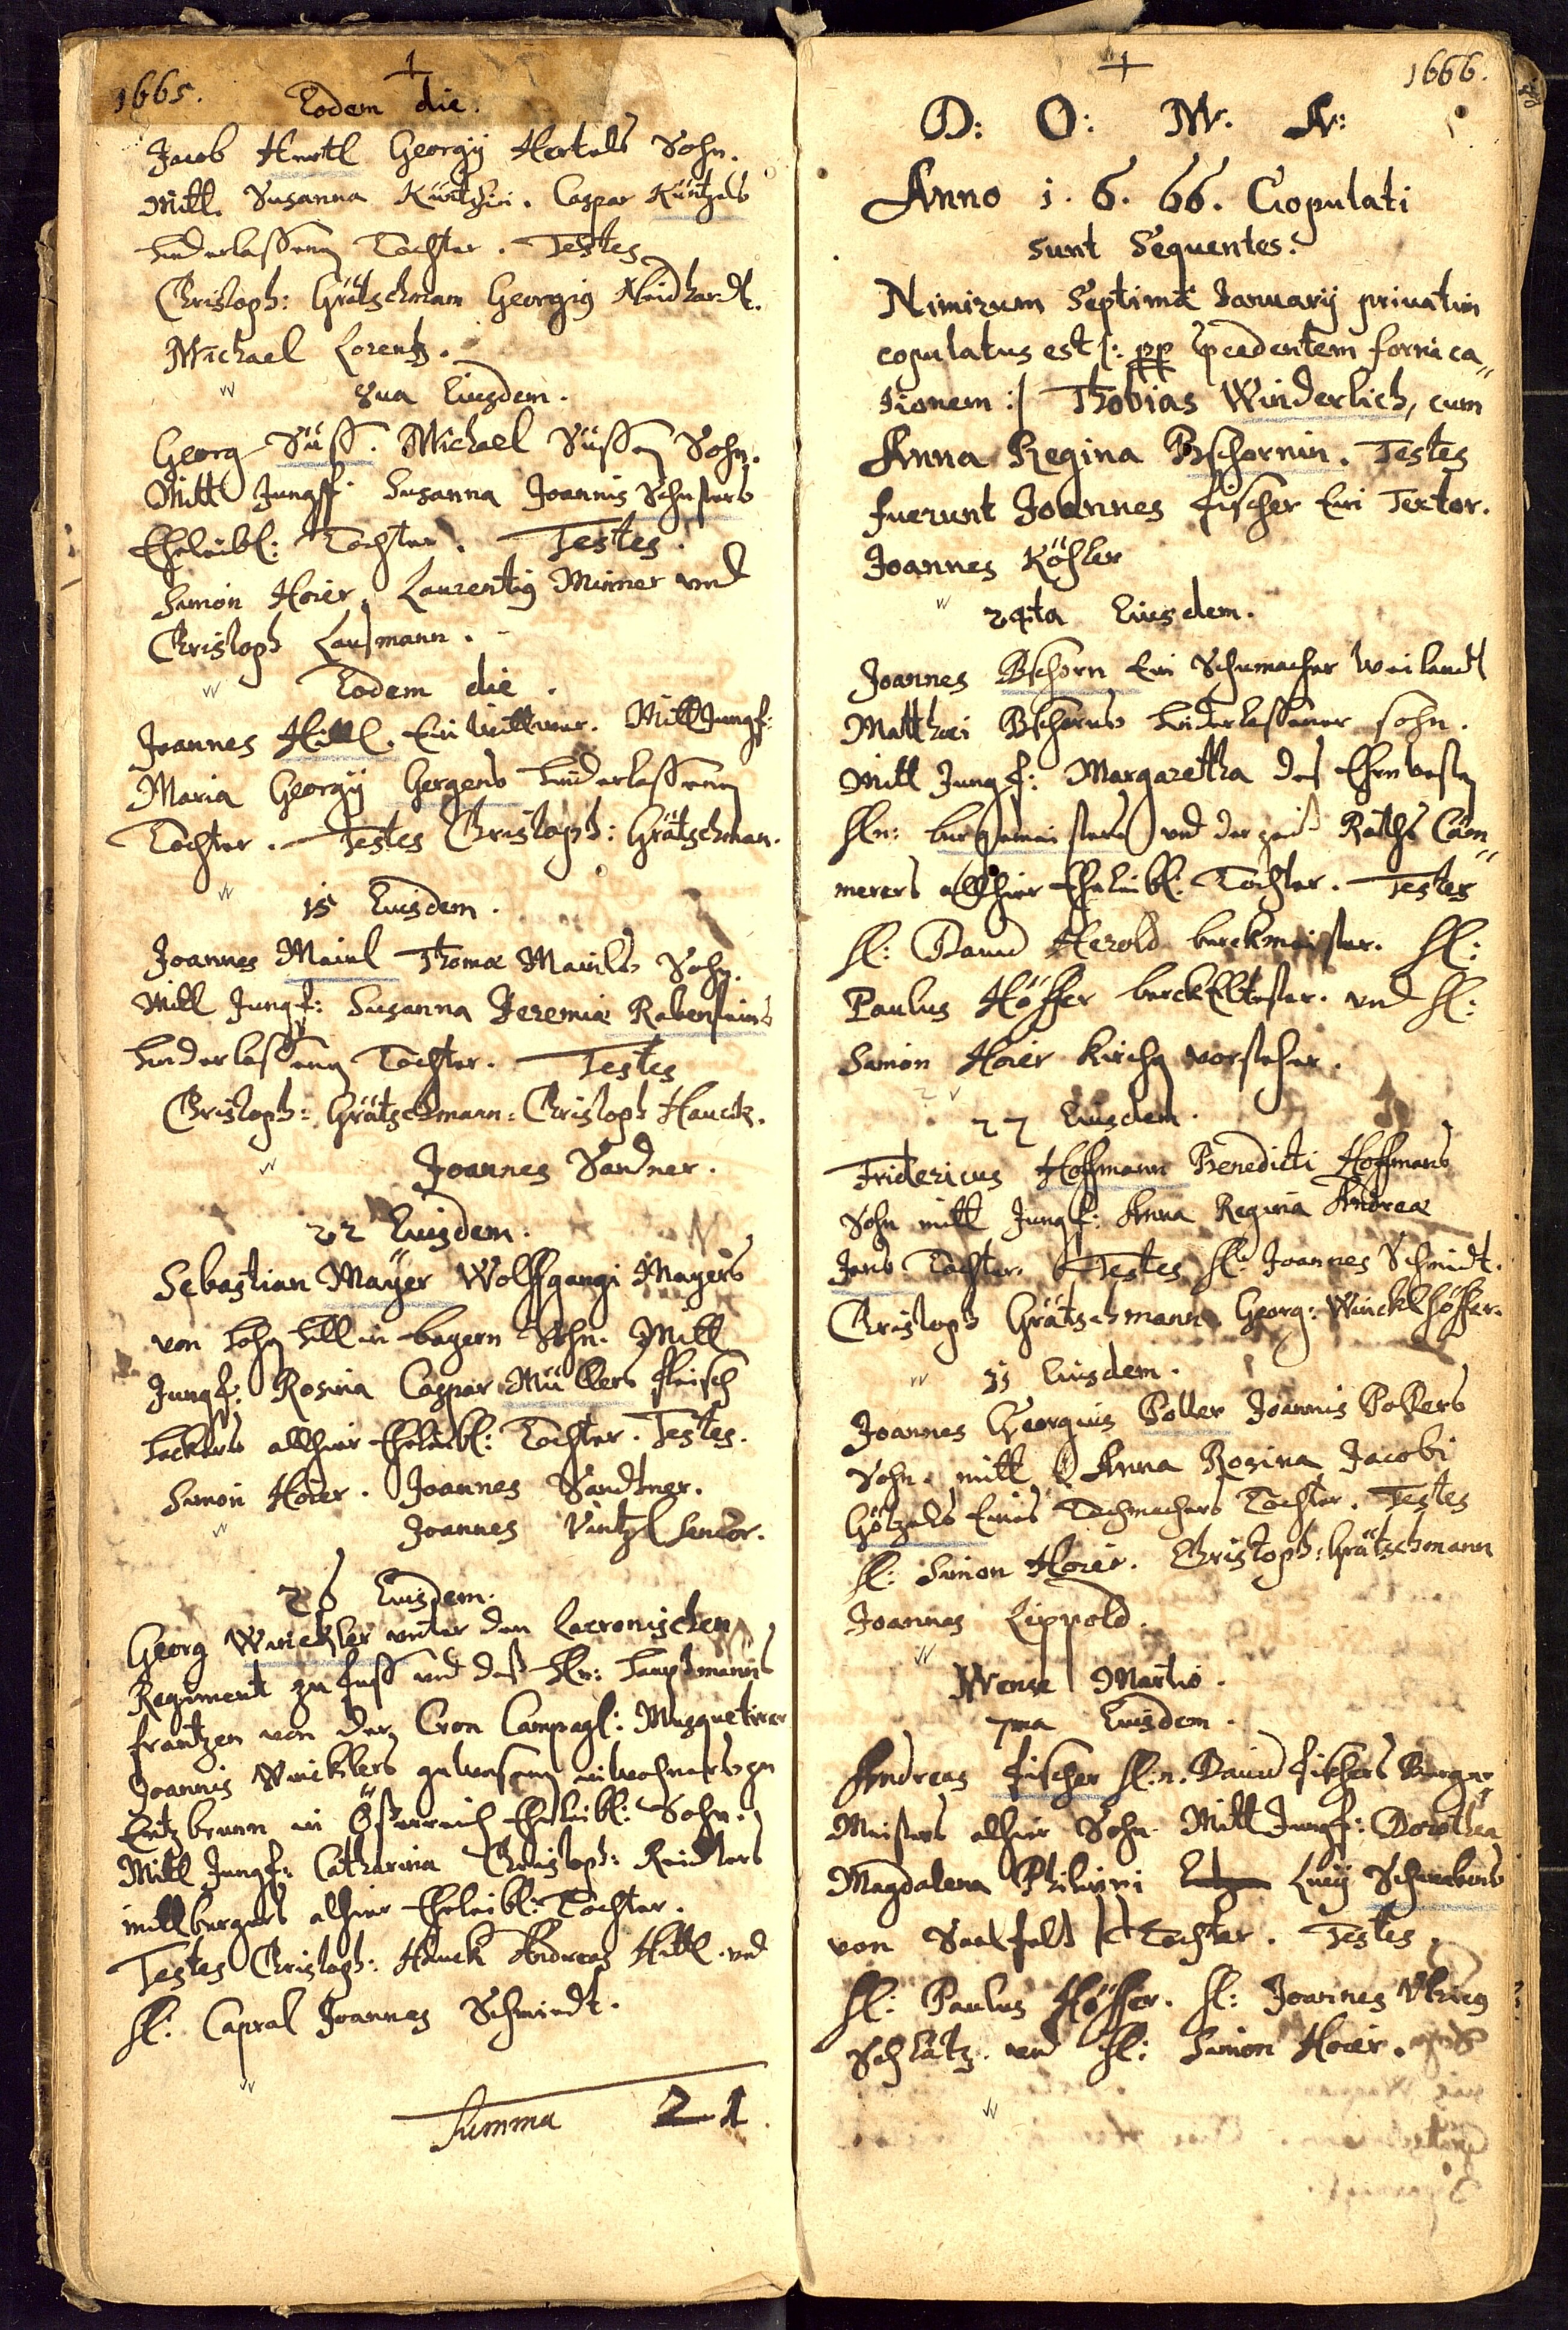 1665.
Eodem die.
Jacob Hertl Georgÿ Hertels Sohn.
Mitt. Susanna Küntzlin. Caspar Küntzels
hinderlassenen Tochter. Testes
Christoph: Grätschmam Georgiy Neidhardt.
Michael Lorentz.
8ua Eiusdem.
Georg Süss. Michael Süssen Sohn.
Mitt Jungff Susanna Joannis Schusters
Eheleibl: Tochter. Testes.
Simon Hoier, Laurentiy Minner und
Christoph Lausmann.
Eodem die.
Joannes Hittl. Ein Wittwer. Mitt Jungf:
Maria Georgÿ Gergens hinderlassenen
Tochter. Testes Christoph: Grätschman.
15 Eiusdem.
Joannes Mainl Thomæ Mainls Sohn.
Mitt Jungf: Susanna Jeremiæ Rabensteins
hinderlassenen Tochter. Testes
Christoph: Grätschmann: Christoph Hauck.
Joannes Sandner.
22 Eiusdem.
Sebastian Maÿer Wolffgangi Mayers
von in bayern Sohn. Mitt
Jungf: Rosina Caspar Müllers fleisch
hackers allhier Eheleibl: Tochter. Testes.
Simon Hoier. Joannes Sandtner.
Joannes Vintzl Senior.
26 Eiusdem.
Georg Winckler unter den Lacronischen
Regiment zu fuss und dess Hr: hauptmanns
frantzen von der Cron Compagl: Musquetirer
Joannis Wincklers gewesenen inwohners zu
Entzbrunn in Österreich Eheleibl: Sohn.
Mitt Jungf: Catharina Christoph: Reidlers
mittburgers alhier Eheleibl: Tochter.
Testes Christoph: Hauck Andreas Hittl. und
H: Capral Joannes Schmidt.
Summa 21.
1666.
D: O: M. A:
Anno 1. 6. 66. Copulati
sunt Sequentes.
Nimirum Septima Januarij priuatim
copulatus est /: pp præcedentem fornica„
tionem :/ Thobias Winderlich, cum
Anna Regina Bschornin. Testes
fuerunt Joannes fischer Ein Textor.
Joannes Köhler
24ta Eiusdem.
Joannes Bschorn Ein Schumacher weilandt
Matthæi Bschorns hinderlassener sohn.
Mitt Jungf: Margaretha des Ehrnvesten
Hn: burgemeisters und der zeit Raths Cäm„
merers allhier Eheleibl: Tochter. Testes
H: Dauid Herold berckmeister. H:
Paulus Höffer berckElltester. und H:
Simon Hoier Kirchenvorsteher.
27 Eiusdem.
Fridericus Hoffmann Benedicti Hoffmans
Sohn mitt Jungf: Anna Regina Andreæ
Jans Tochter. Testes H: Joannes Schmidt.
Christoph Grätschmann. Georg: Wincklhöffer.
31 Eiusdem.
Joannes Georgius Poller Joannis Pollers
Sohn. mitt Anna Rosina Jacobi
Götzels Eines Tuchmachers Tochter. Testes
H: Simon Hoier. Christoph: Grätschmann
Joannes Lippold.
Mense Martio.
7ma Eiusdem.
Andreas fischer H:n. Dauid fischers Burger„
Meisters allhier Sohn Mitt Jungf: Dorothea
Magdalena Schwabens
von Saalfeld Tochter. Testes.
H: Paulus Höffer. H: Joannes Ulricus
Schlätz. und H: Simon Hoier.